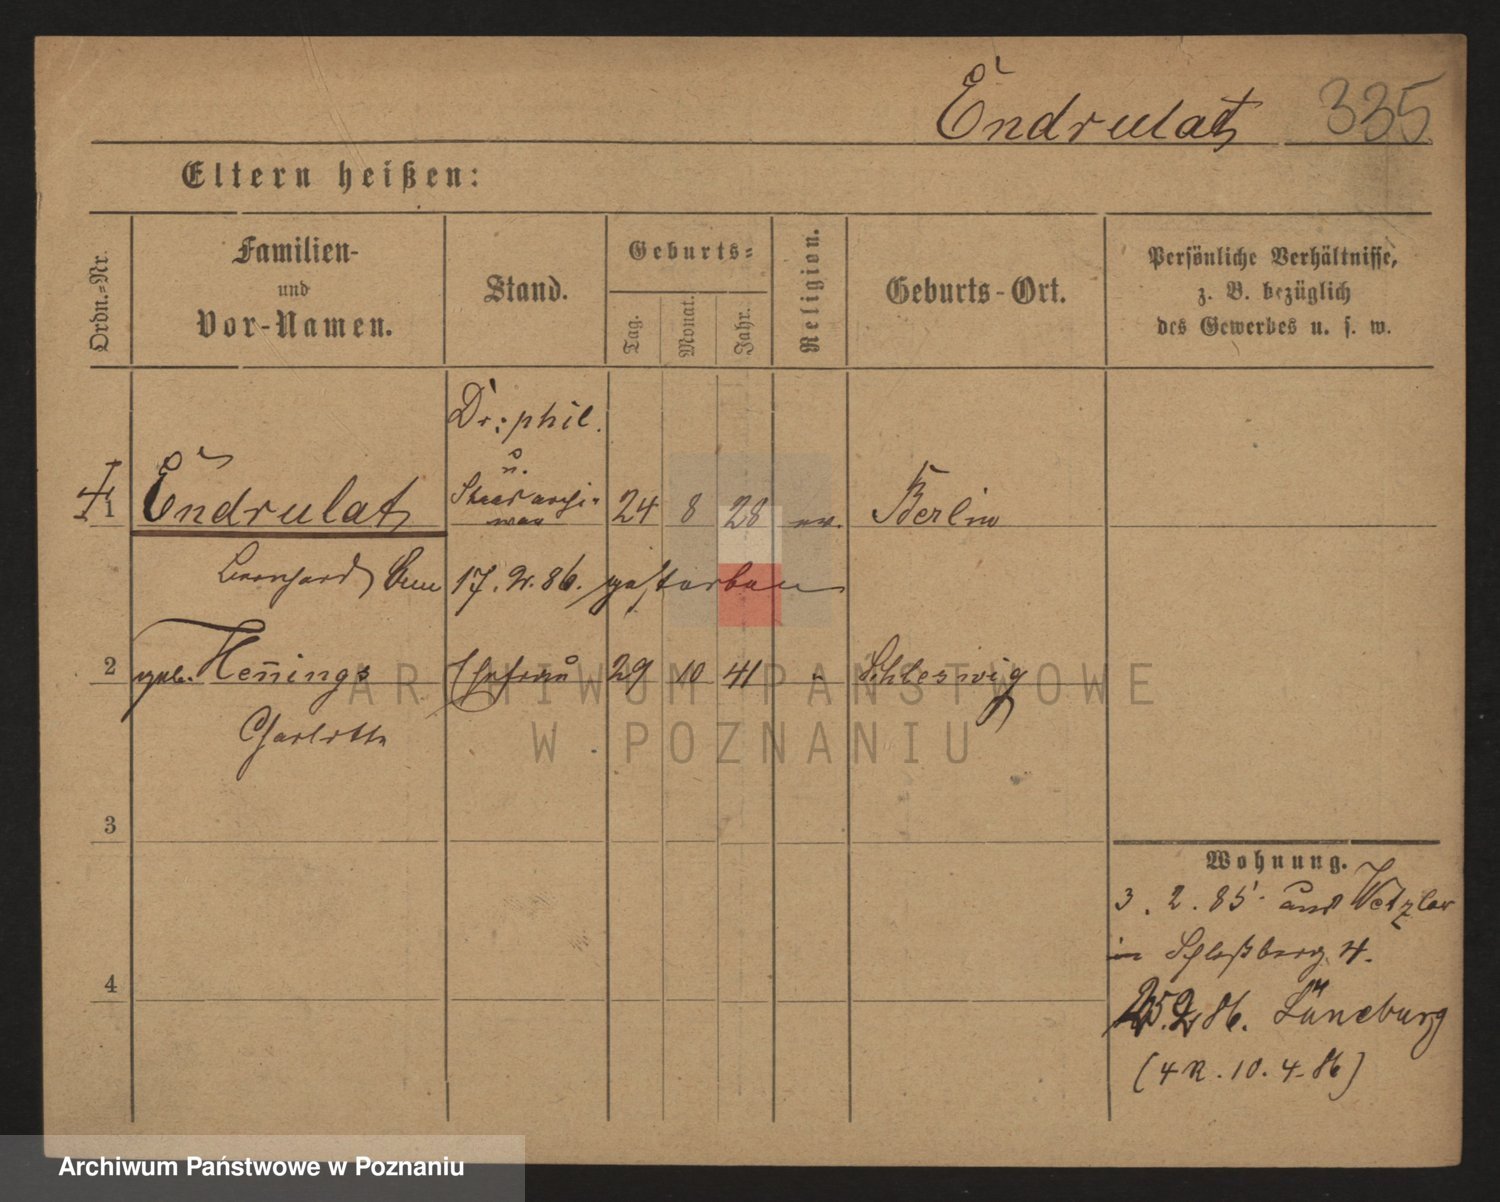 Endrulat 335
Eltern heißen:
Ordn.=Nr.
Familien-
und
Vor-Namen.
Stand.
Geburts=
Tag.
Monat.
Jahr.
Religion.
Geburts-Ort.
Persönliche Verhältnisse,
z. B. bezüglich
des Gewerbes u. s. w.
Dr: phil.
u.
Staatsarchi-
var
1 Endrulat 24 8 28 ev. Berlin
Bernhard 17. 2. 86. gestorben
2 geb. Hen̄ings Ehefrau 29 10 41 " Schleswig
Charlotte
3
4
Wohnung.
3. 2. 85. aus Wetzlar
in Schloßberg 4.
86. Lüneburg
(4 R. 10. 4. 86)
ARCHIWUM PAŃSTWOWE
W POZNANIU
Archiwum Państwowe w Poznaniu